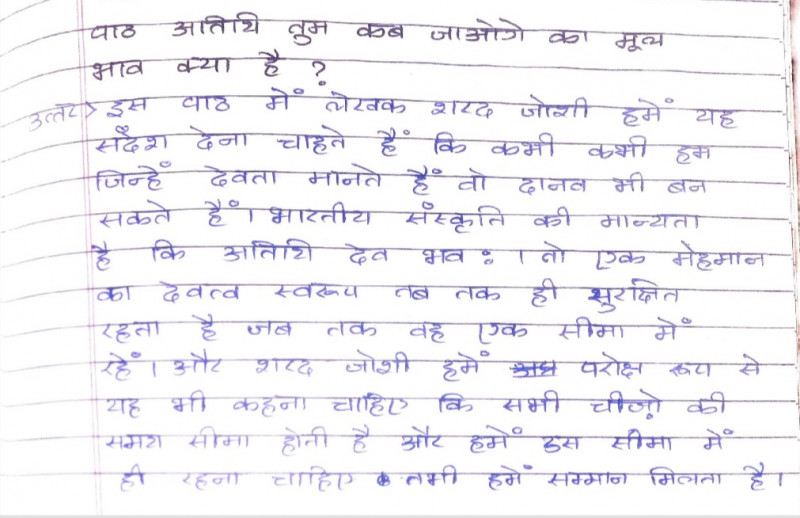 पाठ अतिथि तुम कब जाओगे का मूल
भाव क्या है ?
उत्तर> इस पाठ में लेखक शरद जोशी हमें यह
संदेश देना चाहते हैं कि कभी कभी हम
जिन्हें देवता मानते हैं वो दानव भी बन
सकते हैं। भारतीय संस्कृति की मान्यता
है कि अतिथि देव भव: । तो एक मेहमान
का देवत्व स्वरूप तब तक ही सुरक्षित
रहता है जब तक वह एक सीमा में
रहें। और शरद जोशी हमें परोक्ष रूप से
यह भी कहना चाहिए कि सभी चीजो़ की
समय सीमा होती है और हमें उस सीमा में
ही रहना चाहिए तभी हमें सम्मान मिलता है।